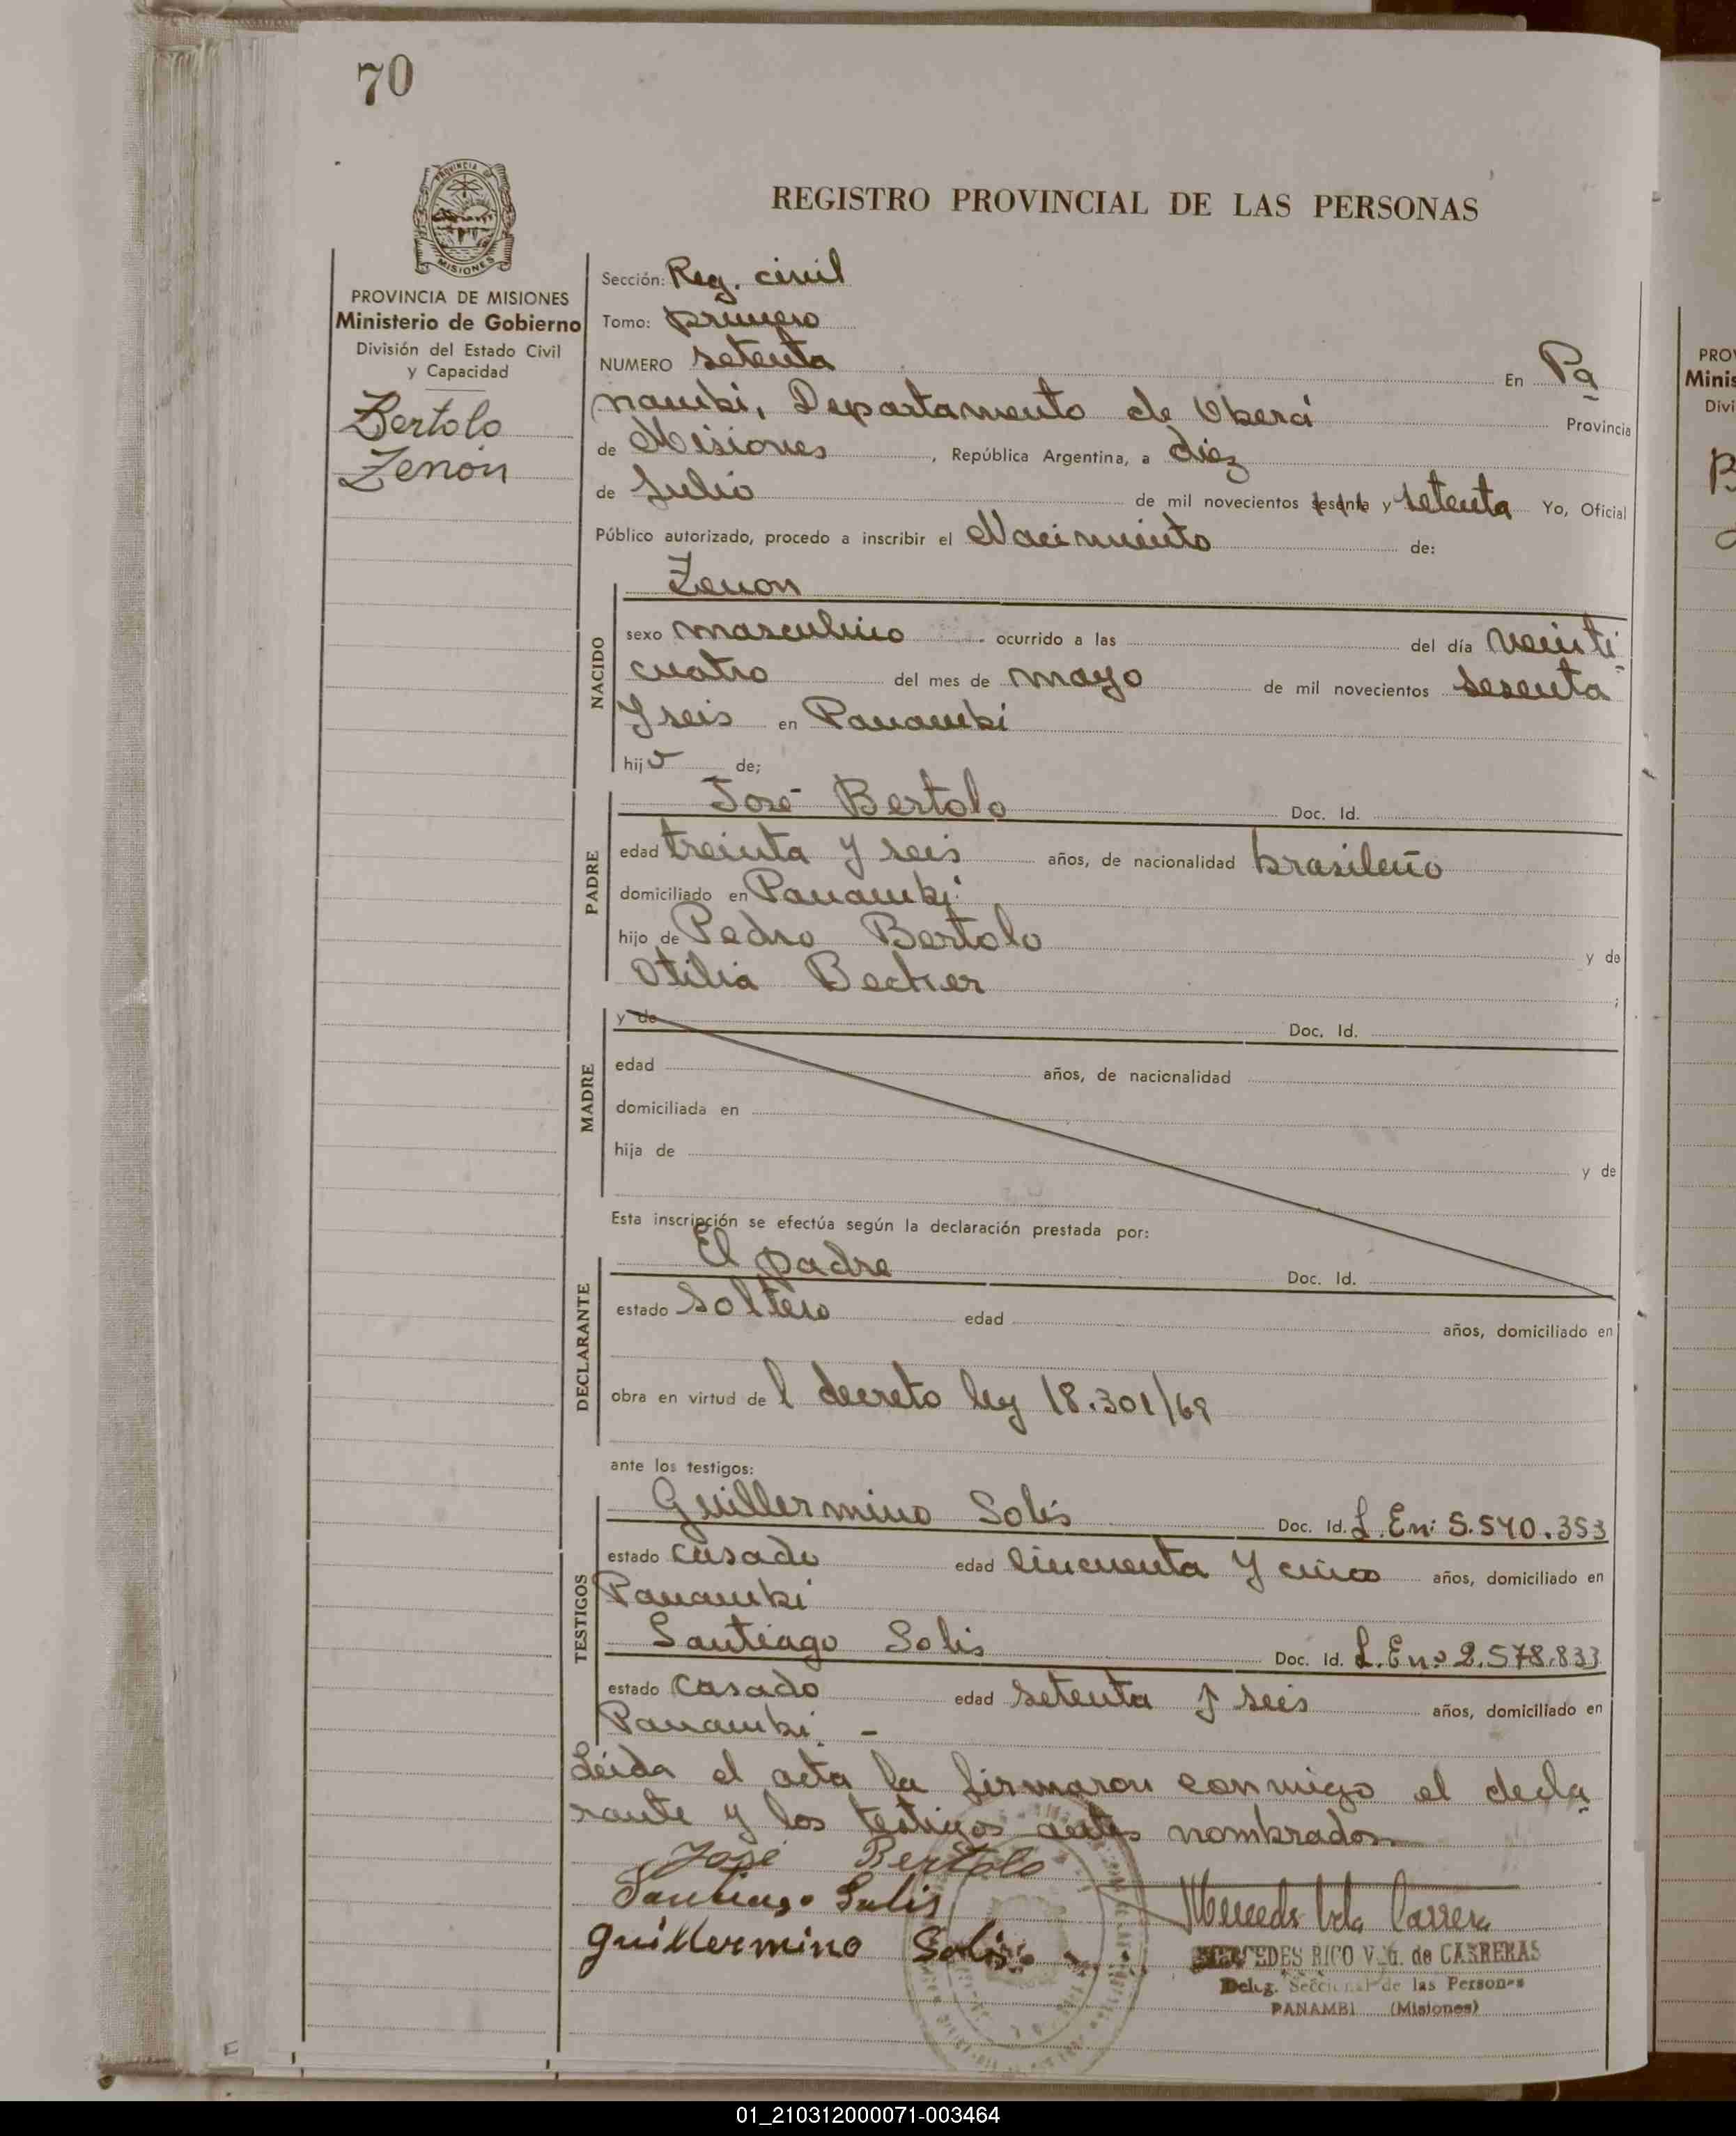 70
PROVINCIA
MISIONES
REGISTRO PROVINCIAL DE LAS PERSONAS
PROVINCIA DE MISIONES
Ministerio de Gobierno
División del Estado Civil
y Capacidad
Bertolo
Zenón
Sección: Reg. civil
Tomo: primero
NUMERO setenta En Pa
nambi, Departamento de Oberá Provincia
de Misiones, República Argentina, a diez
de Julio de mil novecientos sesenta y setenta Yo, Oficial
Público autorizado, procedo a inscribir el Nacimiento de:
NACIDO
Zenon
sexo masculino ocurrido a las del día veinti
cuatro del mes de mayo de mil novecientos sesenta
y seis en Panambi
hijo de;
PADRE
José Bertolo Doc. Id.
edad treinta y seis años, de nacionalidad brasileño
domiciliado en Panambi
hijo de Pedro Bertolo y de
Otilia Becker ;
MADRE
y de Doc. Id.
edad años, de nacionalidad
domiciliada en
hija de y de
Esta inscripción se efectúa según la declaración prestada por:
DECLARANTE
El padre Doc. Id.
estado Soltero edad años, domiciliado en
obra en virtud de l decreto ley 18.301/69
ante los testigos:
TESTIGOS
Guillermino Solis Doc. Id. L. En: 5.540.353
estado casado edad cincuenta y cinco años, domiciliado en
Panambi
Santiago Solis Doc. Id. L. En: 2.578.833
estado casado edad setenta y seis años, domiciliado en
Panambi. -
Leida el acta la firmaron conmigo el decla
rante y los testigos antes nombrados.
José Bertolo
Santiago Solis
Guillermino Solis
Mercedes Vda Carrera
MERCEDES RICO Vda. de CARRERAS
Deleg. Seccional de las Personas
PANAMBI (Misiones)
PRO
Minis
Divi
B
01_210312000071-003464